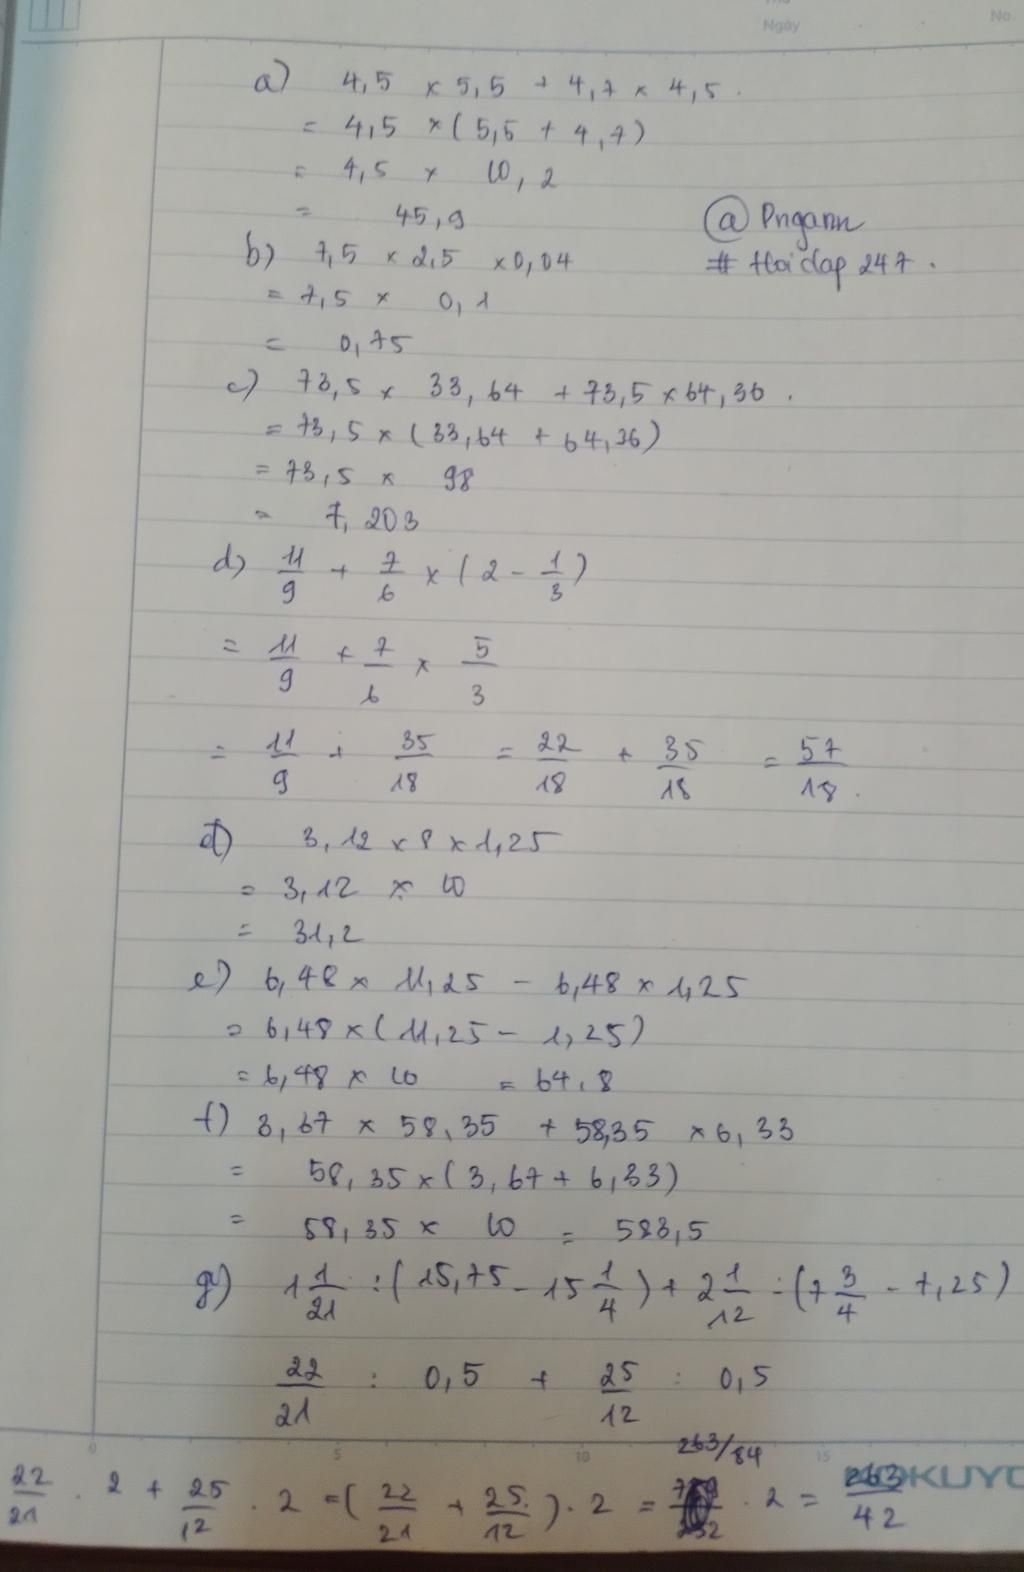 Ngày
No.
a) 4,5 × 5,5 + 4,7 × 4,5.
= 4,5 × (5,5 + 4,7)
= 4,5 × 10,2
= 45,9
@ Pngann
# Hoidap 247.
b) 7,5 × 2,5 × 0,04
= 7,5 × 0,1
= 0,75
c) 73,5 × 33,64 + 73,5 × 64,36.
= 73,5 × (33,64 + 64,36)
= 73,5 × 98
= 7,203
d) 11/9 + 7/6 × (2 - 1/3)
= 11/9 + 7/6 × 5/3
= 11/9 + 35/18 = 22/18 + 35/18 = 57/18.
đ) 3,12 × 8 × 1,25
= 3,12 × 10
= 31,2
e) 6,48 × 11,25 - 6,48 × 1,25
= 6,48 × (11,25 - 1,25)
= 6,48 × 10 = 64,8
f) 3,67 × 58,35 + 58,35 × 6,33
= 58,35 × (3,67 + 6,33)
= 58,35 × 10 = 583,5
g) 1 1/21 : (15,75 - 15 1/4) + 2 1/12 : (7 3/4 - 7,25)
22/21 : 0,5 + 25/12 : 0,5
0 5 10 15
KOKUYO
22/21 . 2 + 25/12 . 2 = (22/21 + 25/12) . 2 = 263/84 . 2 = 263/42